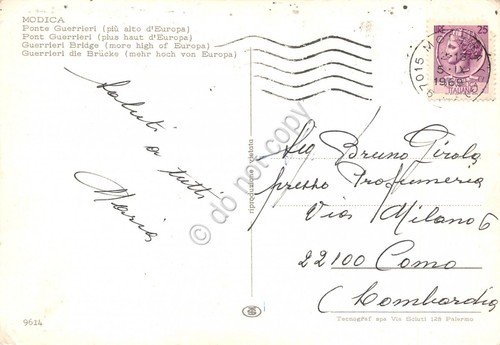 MODICA
Ponte Guerrieri (più alto d'Europa)
Pont Guerrieri (plus haut d'Europa)
Guerrieri Bridge (more high of Europa)
Guerrieri die Brücke (mehr hoch von Europa)
25
ITALIANE
1969
Saluti a tutti
Maria
riproduzione vietata
do not copy
Sig Bruno Girola
presso Profumeria
Via Milano 6
22100 Como
(Lombardia
9614
Tecnograf spa Via Sciuti 128 Palermo